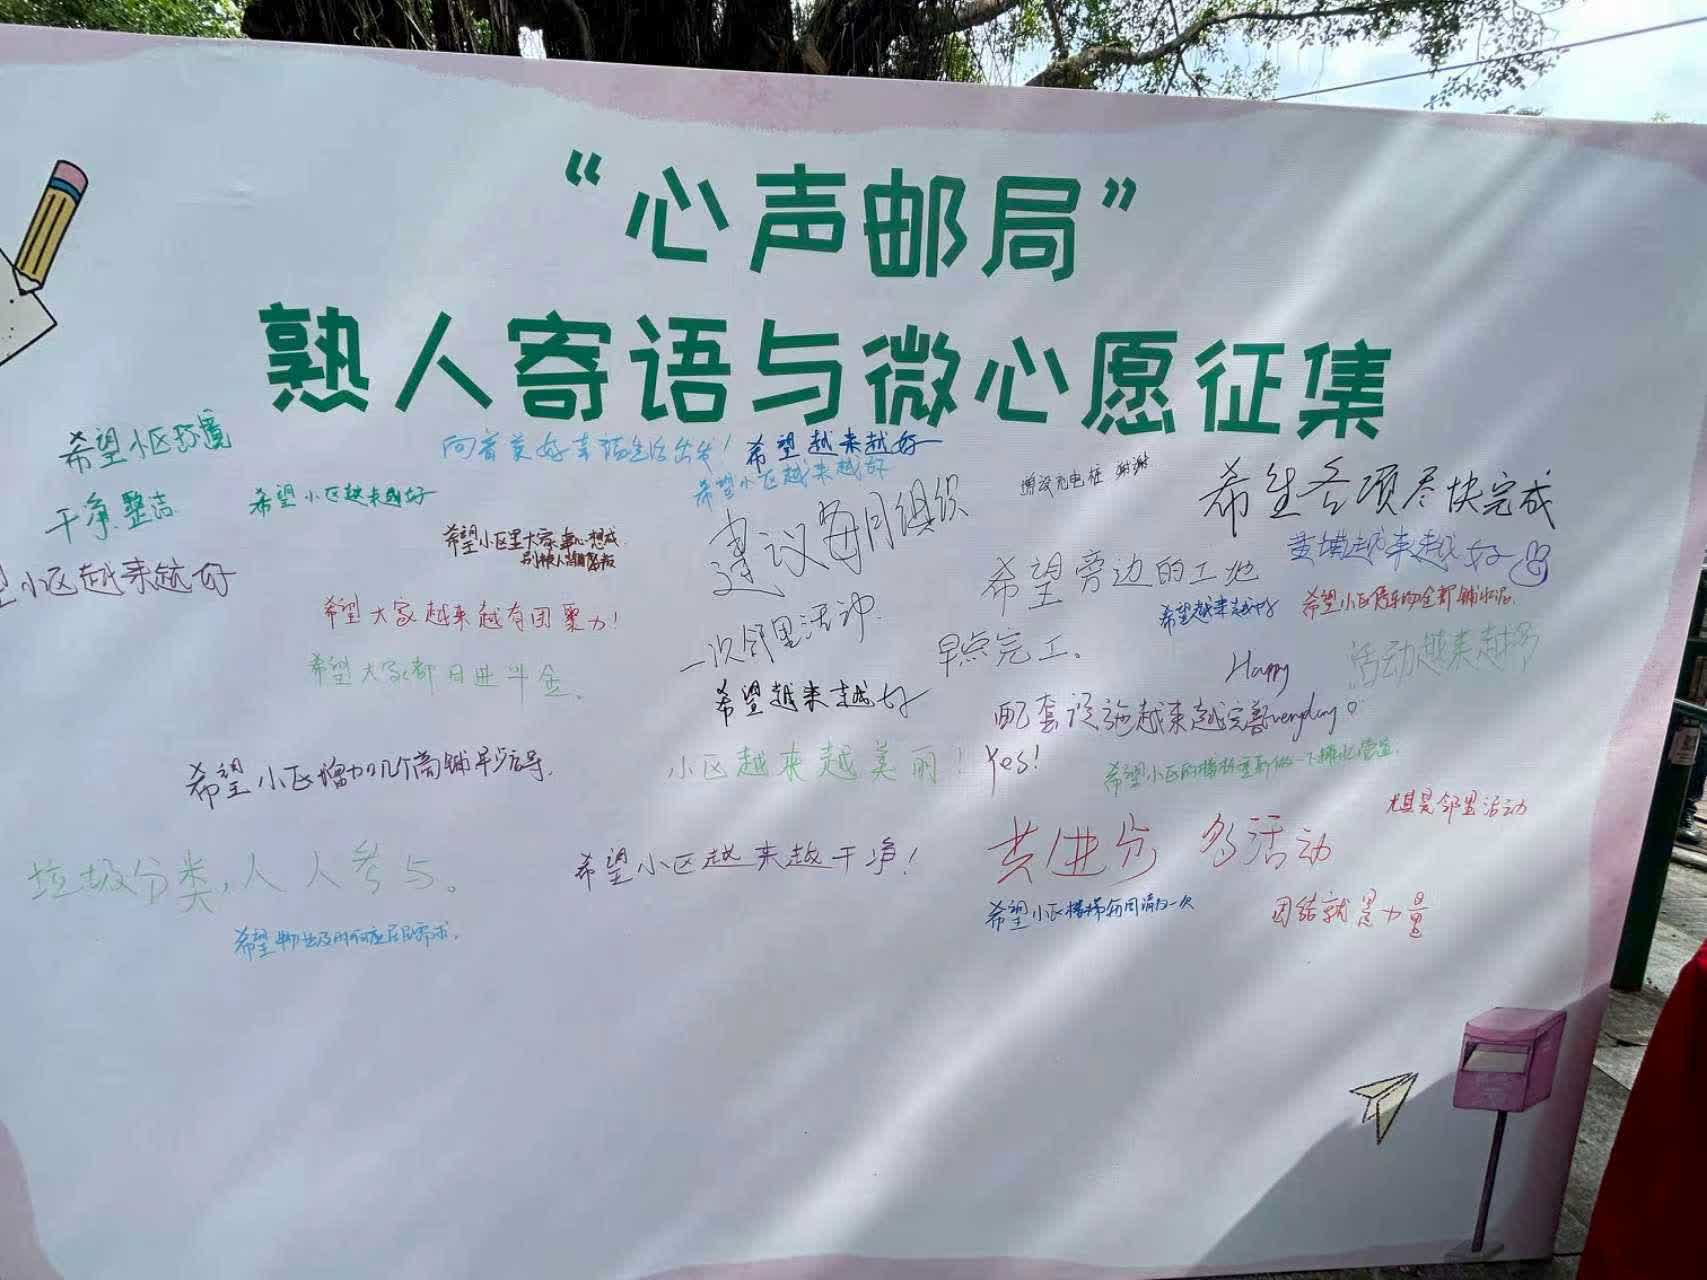 “心声邮局”
熟人寄语与微心愿征集
希望小区环境
干净.整洁
希望小区越来越好
向着美好幸福生活出发！
希望越来越好
希望小区越来越好
增设充电桩 谢谢
希望小区里大家事心想成
建议每月组织
一次邻里活动.
小区越来越好
希望大家越来越有团聚力！
希望大家都日进斗金。
希望旁边的工地
早点完工。
越来越好
希望越来越好
希望小区
Happy
活动越来越多
希望越来越好
配套设施越来越完善
Yes!
小区越来越美丽！
希望小区增加几个商铺
希望小区的楼梯重新做一下
尤其是邻里活动
共进步 多活动
垃圾分类，人人参与。
希望小区越来越干净！
希望小区楼梯每周清扫一次
团结就是力量
希望物业及时响应居民需求.